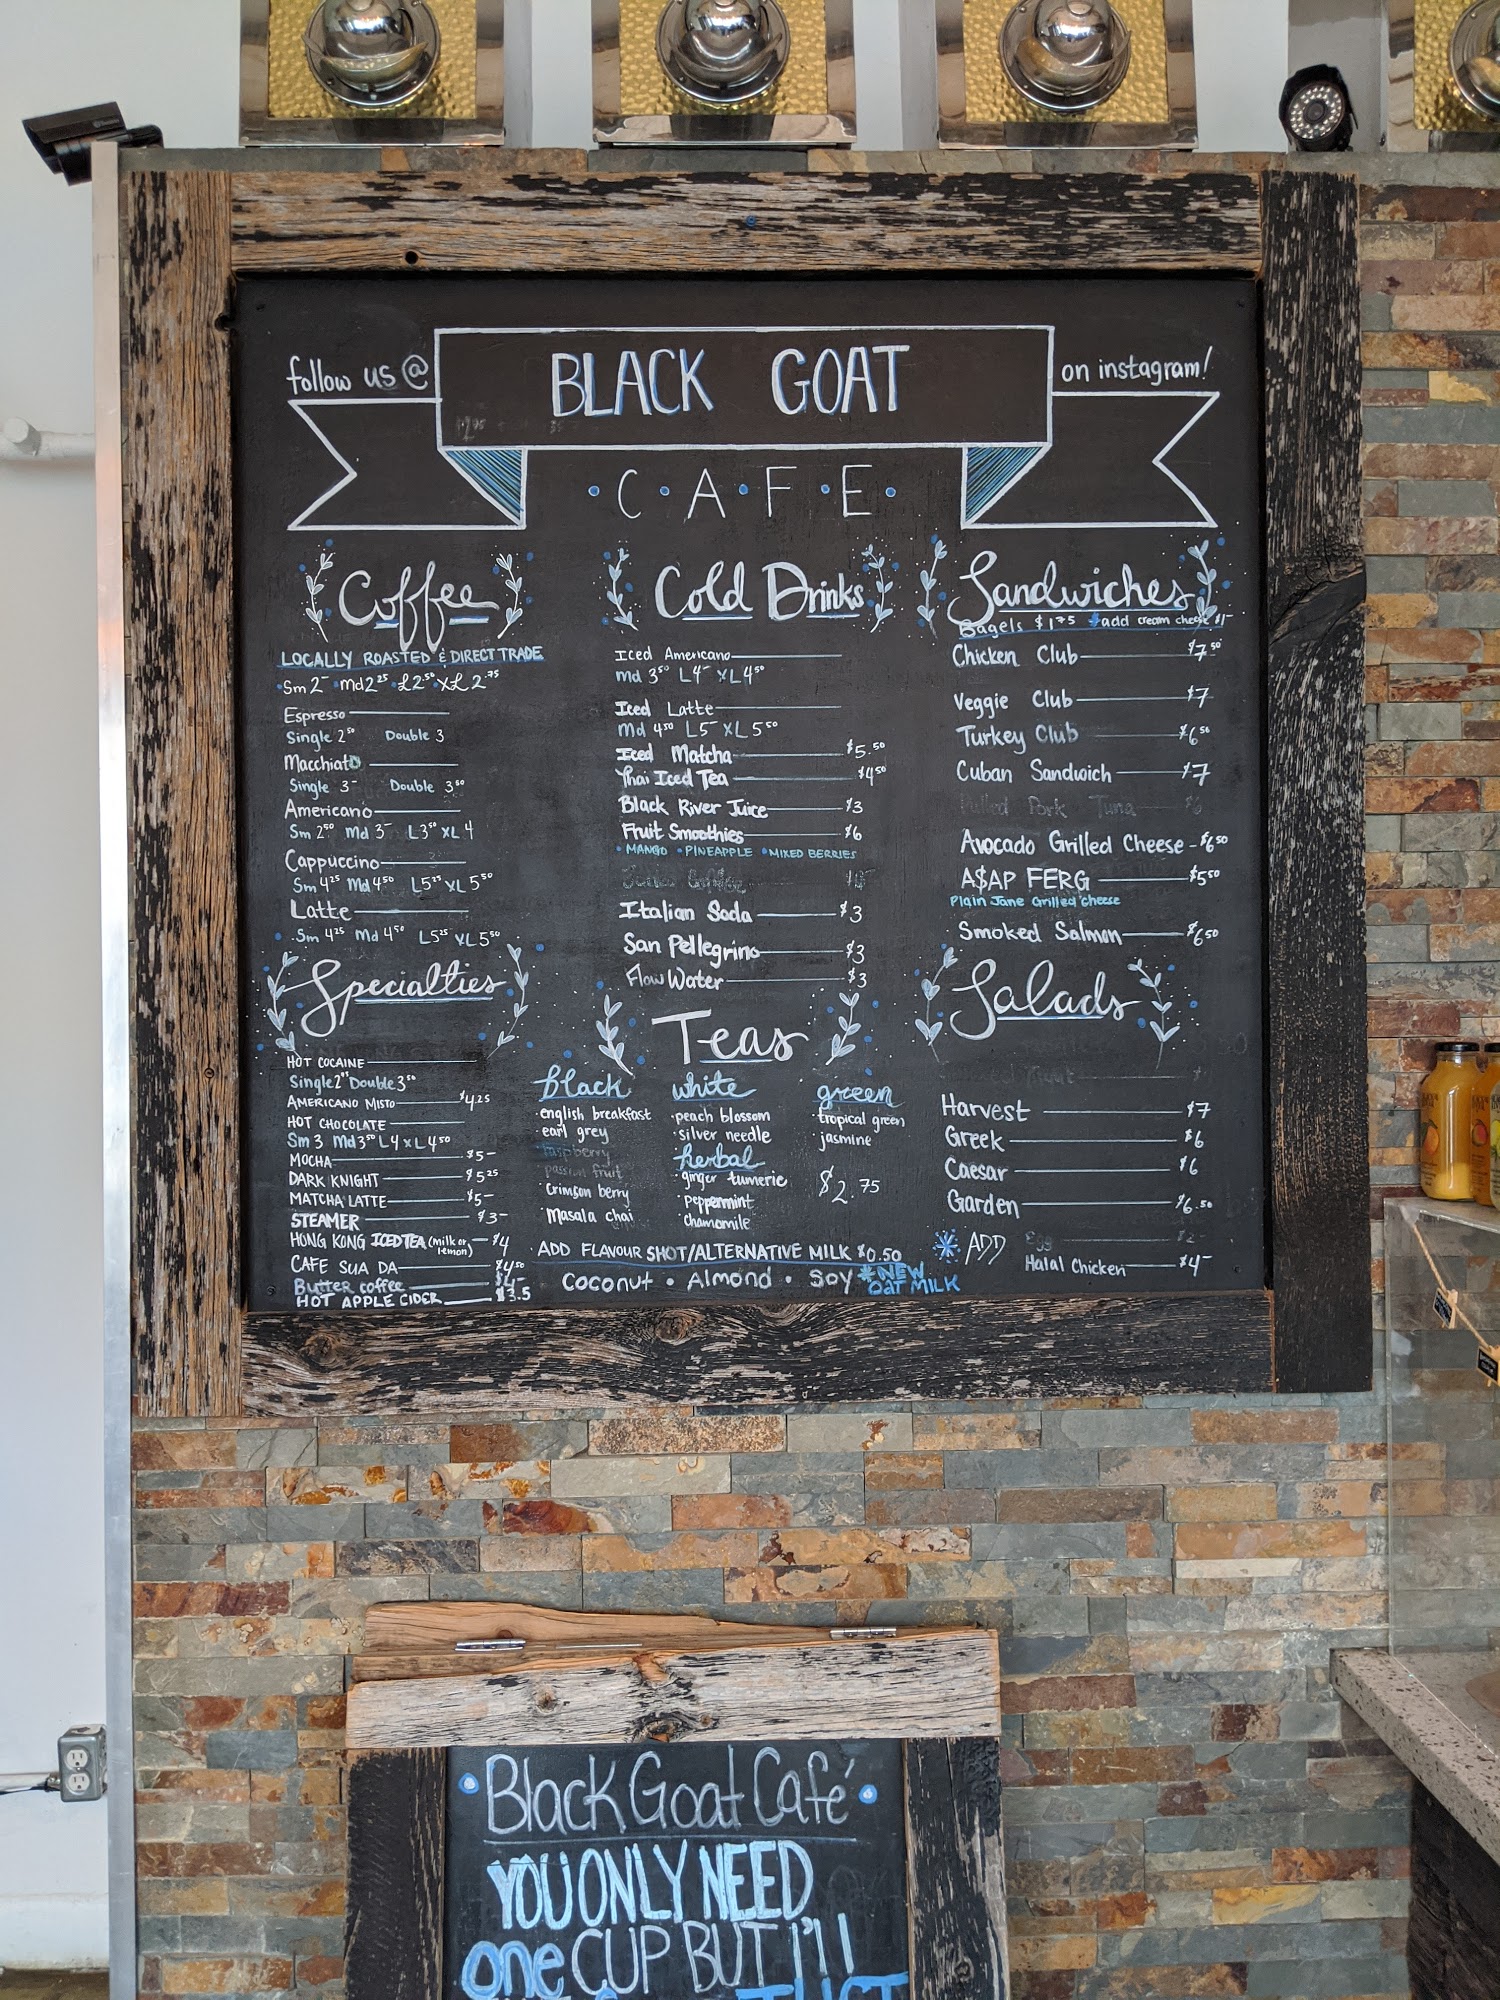 follow us @ BLACK GOAT on instagram!
C·A·F·E
Coffee
LOCALLY ROASTED & DIRECT TRADE
Sm 2- Md 2 25 L 2 50 XL 2 75
Espresso
Single 2 50 Double 3
Macchiato
Single 3- Double 3 50
Americano
Sm 2 50 Md 3- L 3 50 XL 4
Cappuccino
Sm 4 25 Md 4 50 L 5 25 XL 5 50
Latte
Sm 4 25 Md 4 50 L 5 25 XL 5 50
Specialties
HOT COCAINE
Single 2 75 Double 3 50
AMERICANO MISTO $4.25
HOT CHOCOLATE
Sm 3 Md 3 50 L 4 XL 4 50
MOCHA $5-
DARK KNIGHT $5 25
MATCHA LATTE $5-
STEAMER $3-
HONG KONG ICED TEA (milk or lemon) $4
CAFE SUA DA $4 50
Butter coffee $4-
HOT APPLE CIDER $3.5
Cold Drinks
Iced Americano
Md 3 50 L 4- XL 4 50
Iced Latte
Md 4 50 L 5- XL 5 50
Iced Matcha $5.50
Thai Iced Tea $4 50
Black River Juice $3
Fruit Smoothies $6
• MANGO • PINEAPPLE • MIXED BERRIES
Italian Soda $3
San Pellegrino $3
Flow Water $3
Teas
black
english breakfast
earl grey
raspberry
passion fruit
Crimson berry
Masala chai
white
peach blossom
silver needle
herbal
ginger tumeric
peppermint
chamomile
green
tropical green
jasmine
$2.75
ADD FLAVOUR SHOT/ALTERNATIVE MILK $0.50
Coconut • Almond • Soy *NEW
OAT MILK
Sandwiches
Bagels $1 75 add cream cheese $1-
Chicken Club $7 50
Veggie Club $7
Turkey Club $6 50
Cuban Sandwich $7
Pulled Pork Tuna $6
Avocado Grilled Cheese $6 50
A$AP FERG $5 50
Plain Jane Grilled Cheese
Smoked Salmon $6 50
Salads
Harvest $7
Greek $6
Caesar $6
Garden $6.50
ADD Egg $2-
Halal Chicken $4-
Black Goat Café
YOU ONLY NEED
one CUP BUT I'll